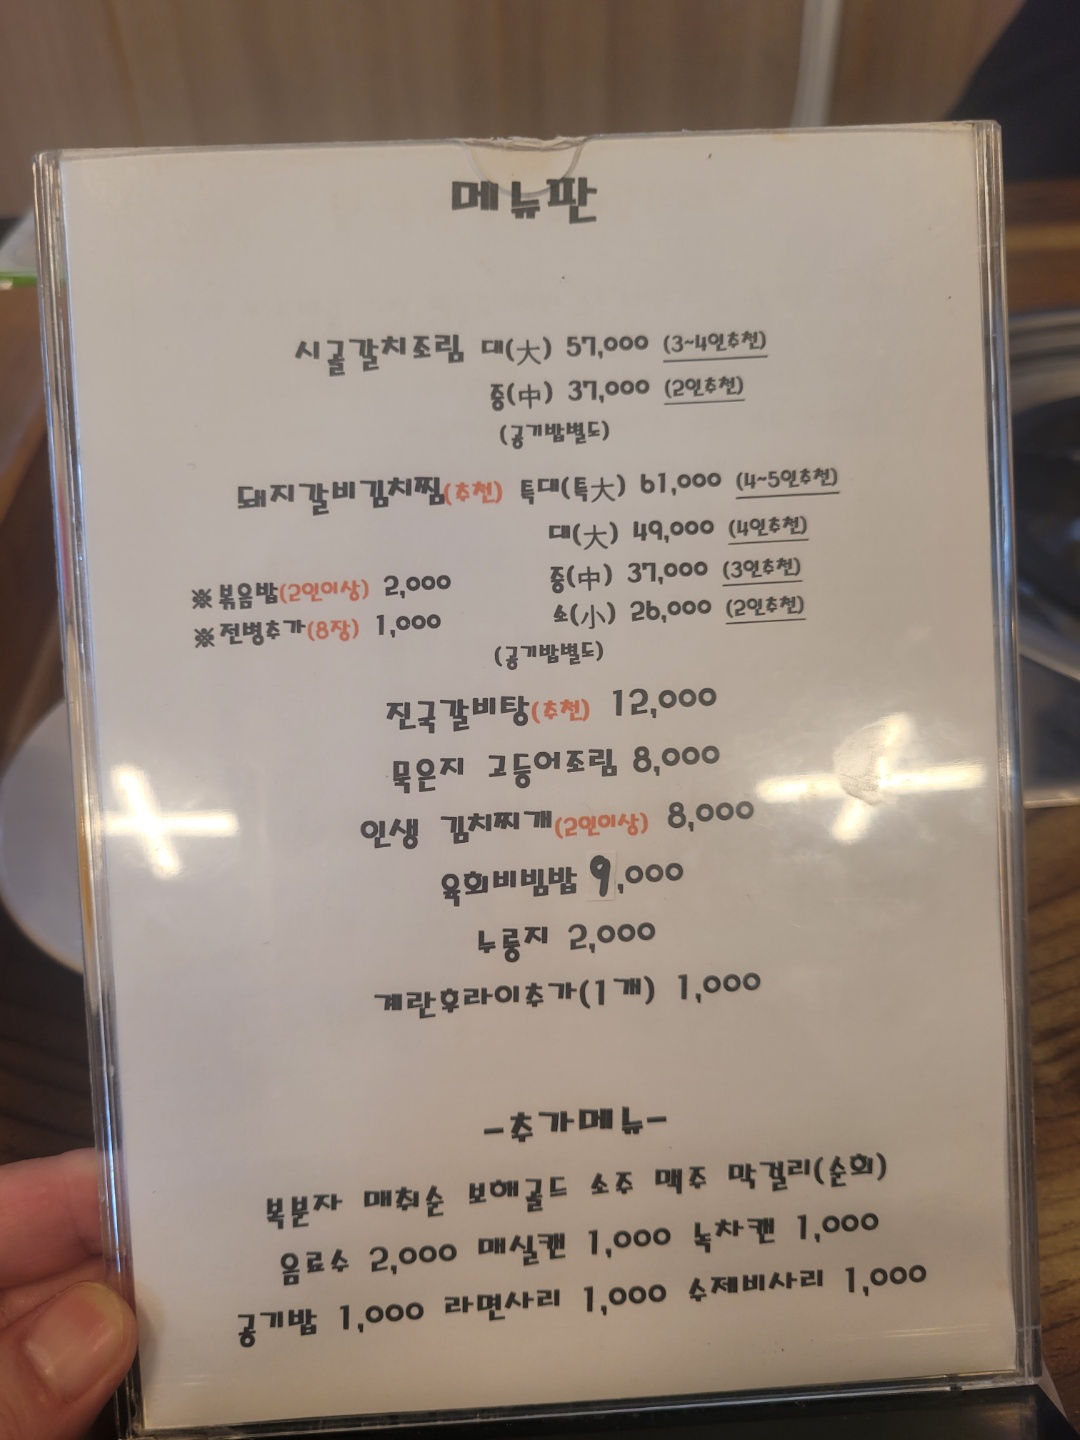 메뉴판
시골갈치조림 대(大) 57,000 (3~4인추천)
중(中) 37,000 (2인추천)
(공기밥별도)
돼지갈비김치찜(추천) 특대(특大) 61,000 (4~5인추천)
대(大) 49,000 (4인추천)
중(中) 37,000 (3인추천)
※볶음밥(2인이상) 2,000
소(小) 26,000 (2인추천)
※전병추가(8장) 1,000
(공기밥별도)
진국갈비탕(추천) 12,000
묵은지 고등어조림 8,000
인생 김치찌개(2인이상) 8,000
육회비빔밥 9,000
누룽지 2,000
계란후라이추가(1개) 1,000
-추가메뉴-
복분자 매취순 보해골드 소주 맥주 막걸리(순희)
음료수 2,000 매실캔 1,000 녹차캔 1,000
공기밥 1,000 라면사리 1,000 수제비사리 1,000